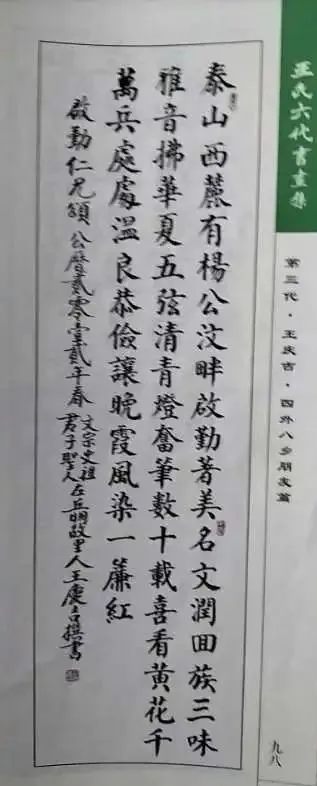 王氏六代書畫集
第三代·王庆吉·四外八乡朋友篇
泰山西麓有楊公汶畔啟勤著美名文潤囬族三味
雅音拂華夏五弦清青燈奮筆數十載喜看黃花千
萬兵處處溫良恭儉讓晚霞風染一簾紅
啟勤仁兄頌公曆貳零壹貳年春
文宗史祖
君子聖人
左丘明故里人王慶吉撰書
九八